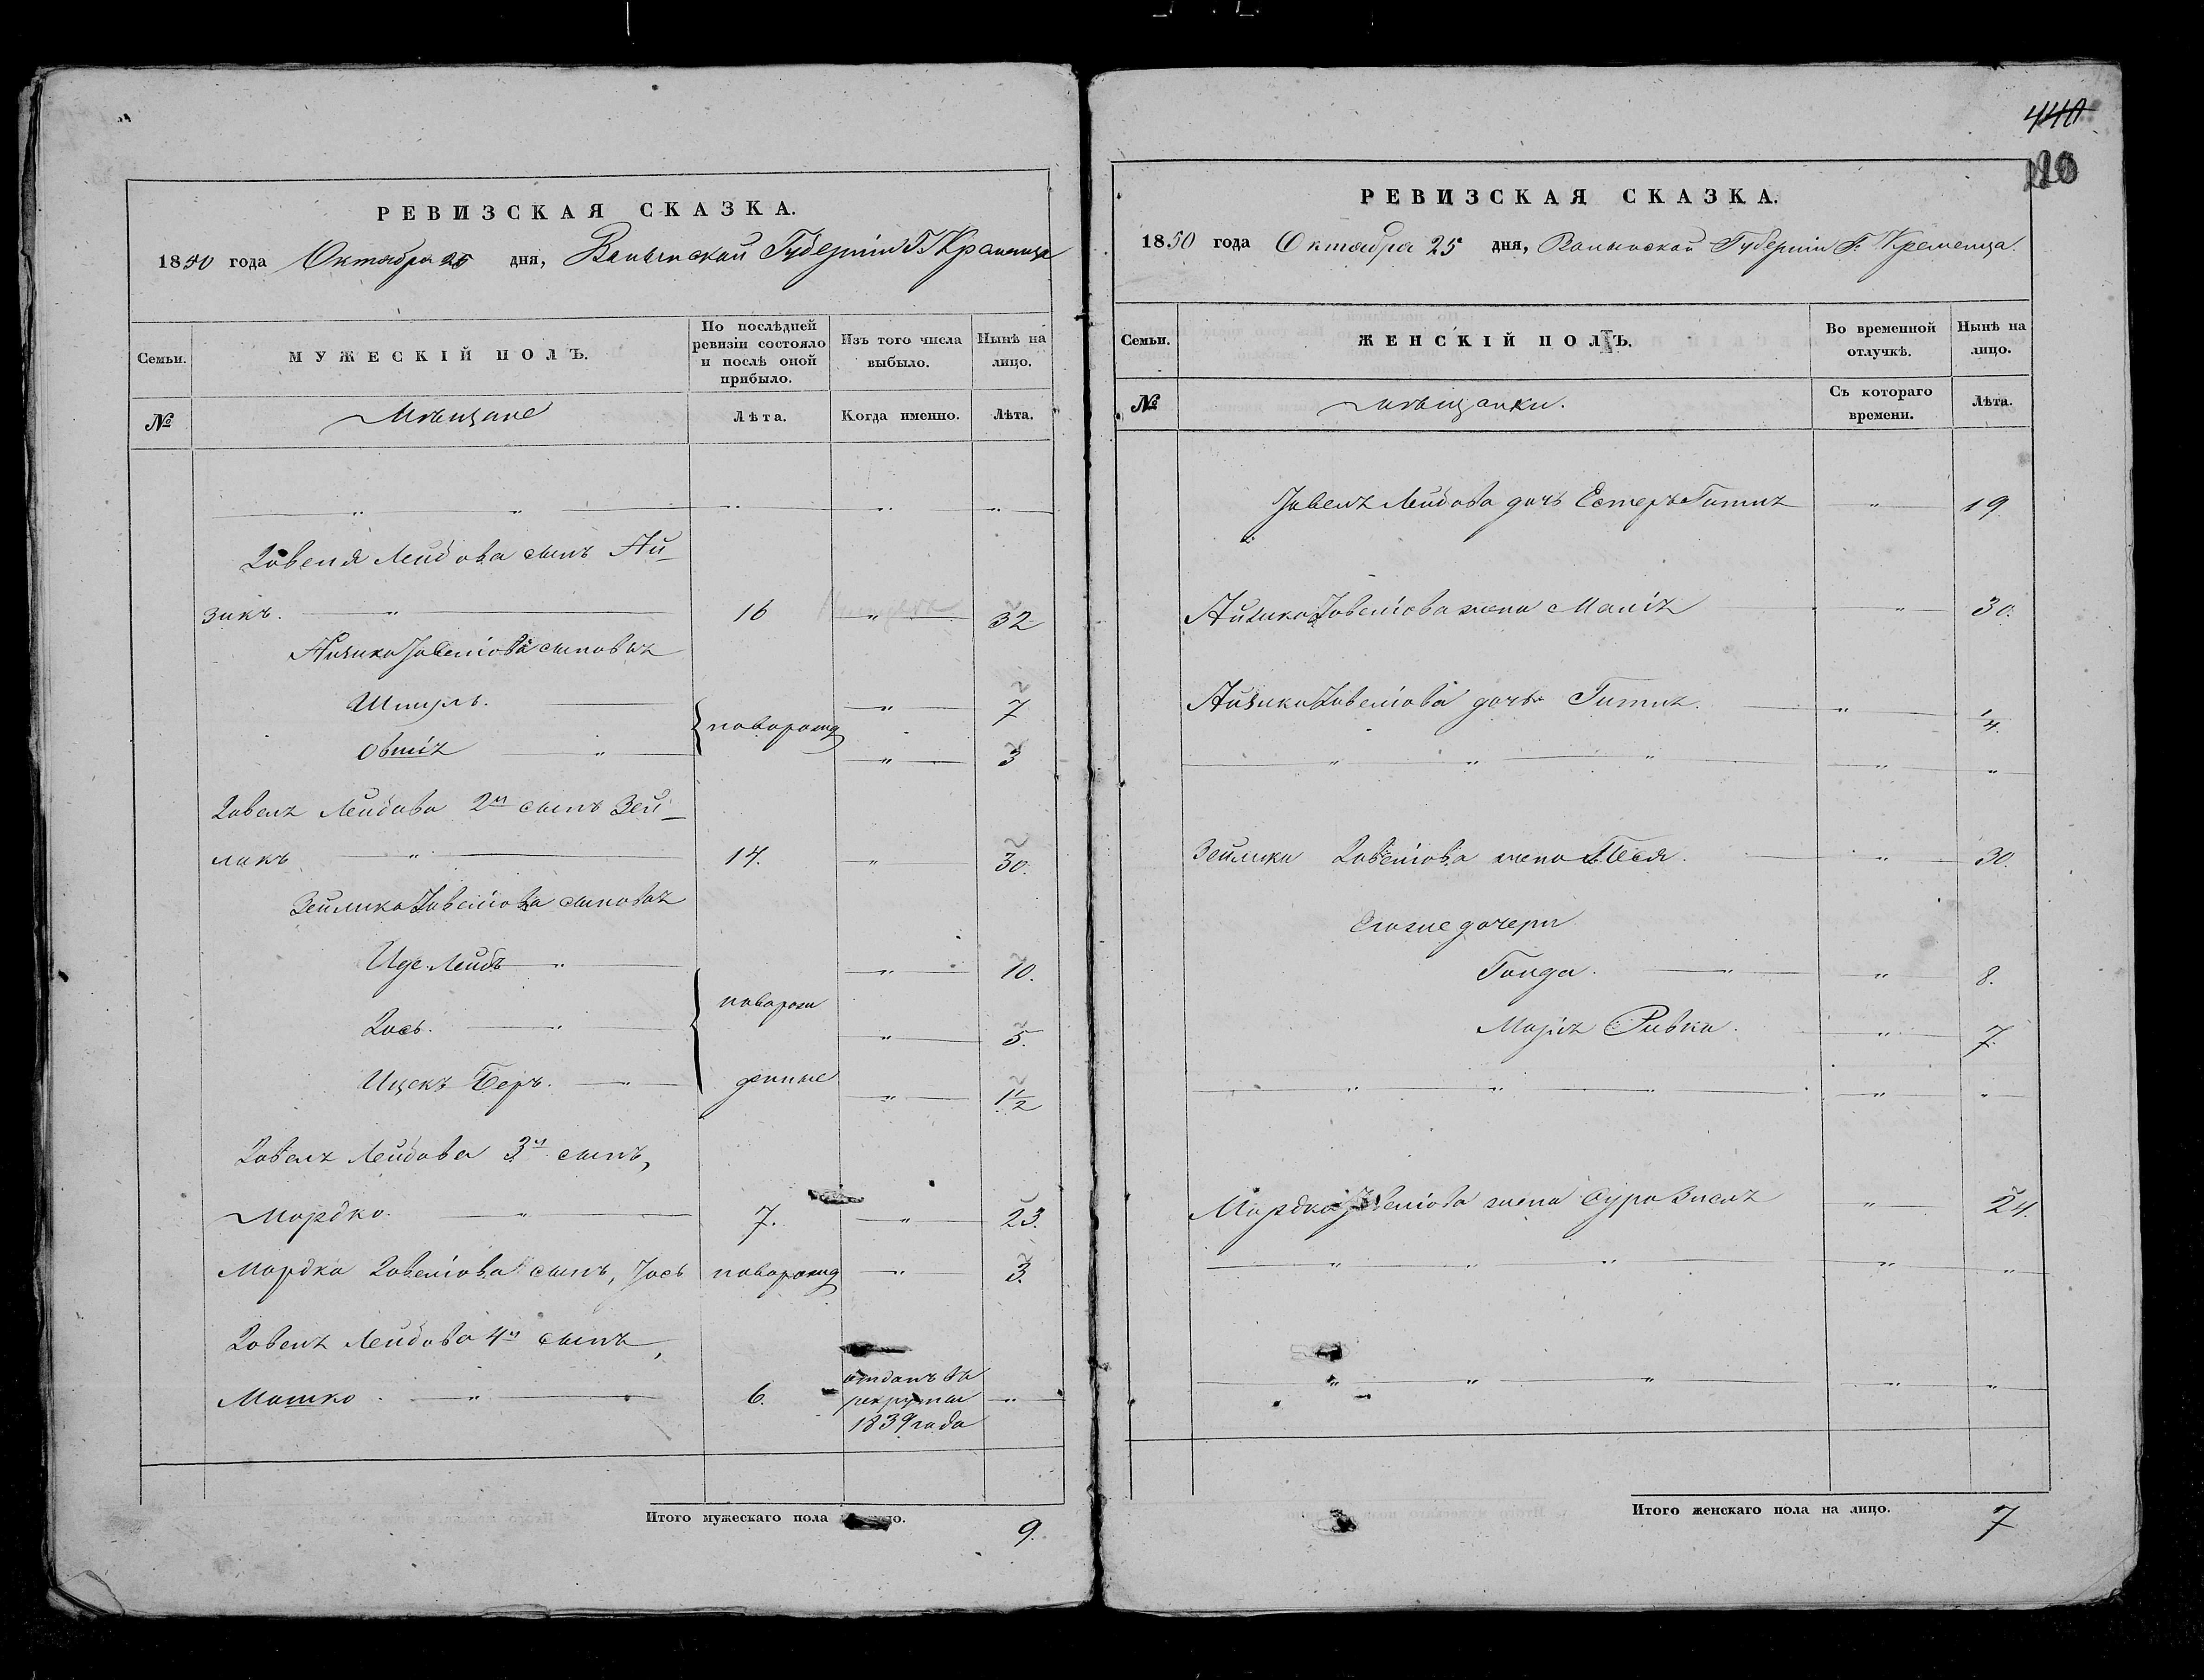 РЕВИЗСКАЯ СКАЗКА.
1850 года Октября 25 дня, Волынской Губерніи Г. Кременца
Семьи.
МУЖЕСКІЙ ПОЛЪ.
По послѣдней ревизіи состояло и послѣ оной прибыло.
Изъ того числа выбыло.
Нынѣ на лицо.
№
Мѣщане
Лѣта.
Когда именно.
Лѣта.
Іовеля Лейбова сынъ Ай-
зикъ. 16 32
Айзика Іовелiова сыновья
Шмуль. 7
новорожд
Овшiя 3
Іовеля Лейбова 2й сынъ Зей-
ликъ 14. 30.
Зейлика Іовелiова сыновья
Иде Лейбъ 10.
новорож
Іось. 5.
Ицекъ Беръ. денные 1 1/2
Іовеля Лейбова 3й сынъ,
Мордко. 7. 23.
Мордка Іовелiова сынъ, Іось новорожд 3.
Іовеля Лейбова 4й сынъ,
Мошко. 6. отданъ въ
рекруты
1839 года
Итого мужескаго пола 9.
440
РЕВИЗСКАЯ СКАЗКА.
1850 года Октября 25 дня, Волынской Губерніи Г. Кременца.
Семьи.
ЖЕНСКІЙ ПОЛЪ.
Во временной отлучкѣ.
Нынѣ на лицо.
№
мѣщанки.
Съ котораго времени.
Лѣта.
Іовеля Лейбова дочь Естеръ Гитля 19.
Айзика Іовелiова жена Маля 30.
Айзика Іовелiова дочь Гитля. 1/4.
Зейлика Іовелiова жена Песя. 30.
Его же дочери
Голда. 8.
Марія Ривка. 7.
Мордка Іовелiова жена Сура Зисля 24.
Итого женскаго пола на лицо. 7